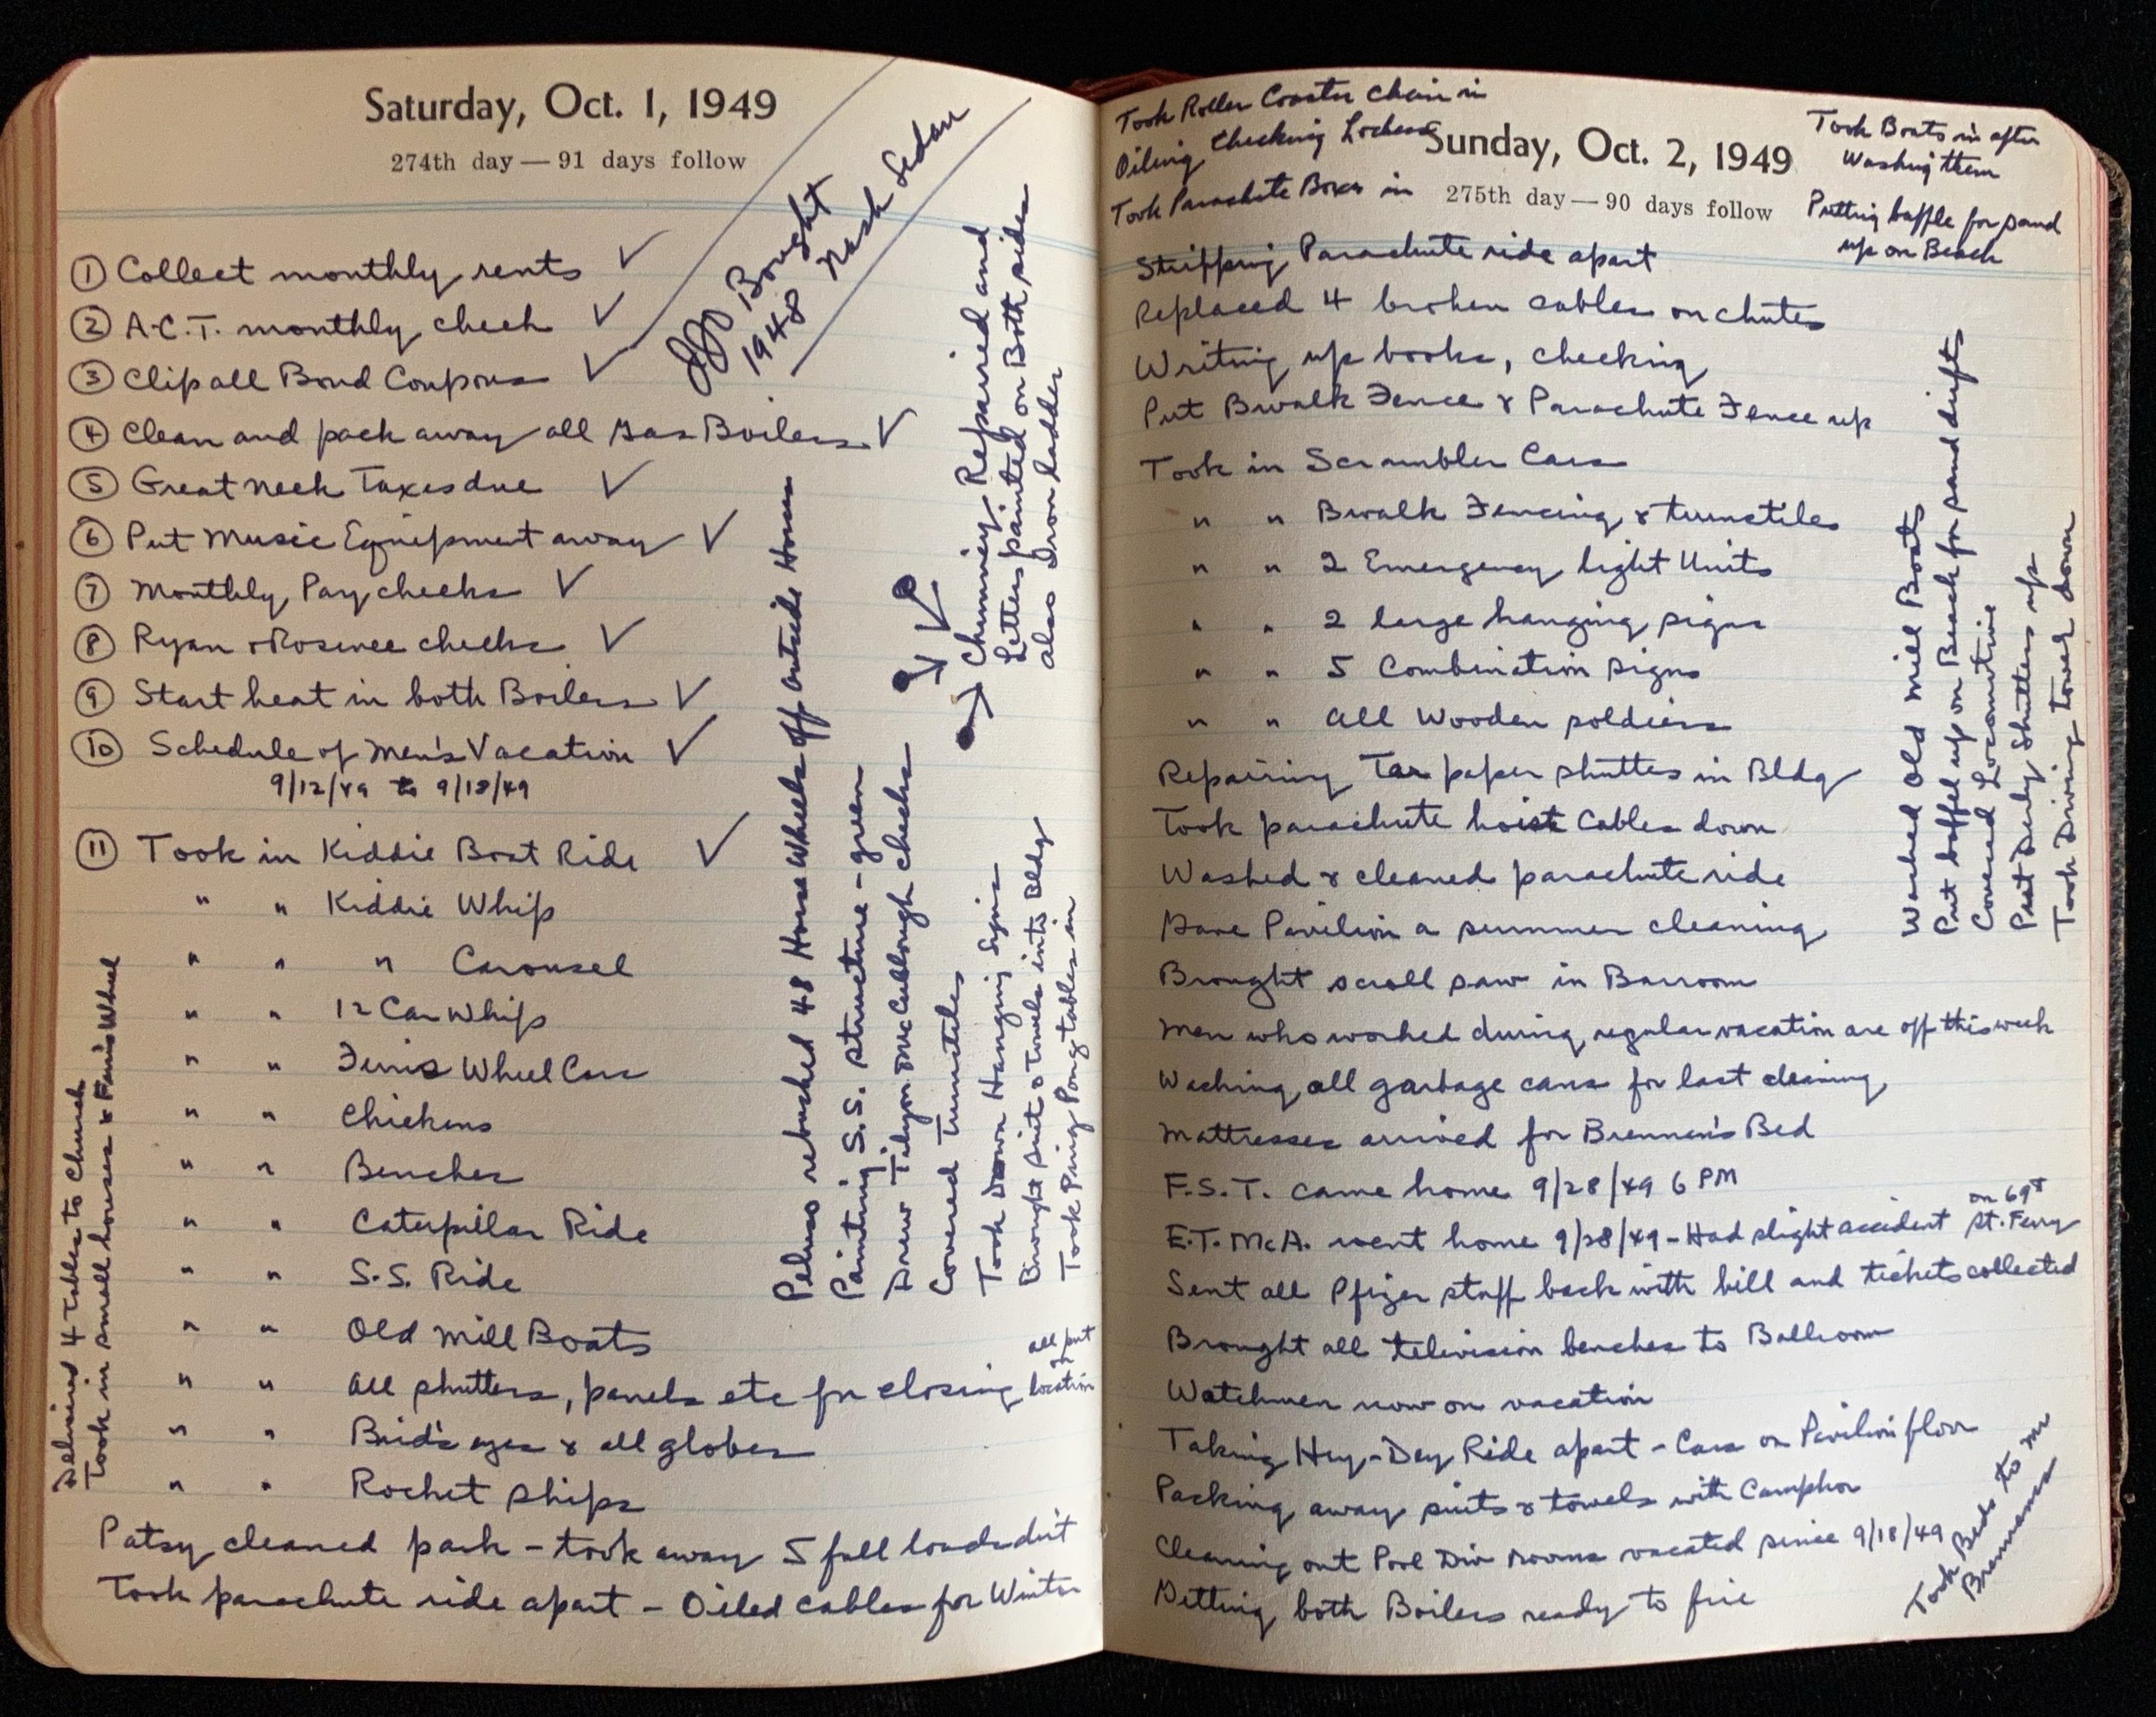 Saturday, Oct. 1, 1949
274th day — 91 days follow
① Collect monthly rents ✓
② A.C.T. monthly check ✓
③ Clip all Bond Coupons ✓
④ Clean and pack away all Gas Boilers ✓
⑤ Great Neck Taxes due ✓
⑥ Put Music Equipment away ✓
⑦ Monthly Pay checks ✓
⑧ Ryan & Rosinee checks ✓
⑨ Start heat in both Boilers ✓
⑩ Schedule of Men's Vacation ✓
9/12/49 to 9/18/49
⑪ Took in Kiddie Boat Ride ✓
" " Kiddie Whip
" " " Carousel
" " 12 Car Whip
" " Ferris Wheel Cars
" " Chickens
" " Benches
" " Caterpillar Ride
" " S.S. Ride
" " Old Mill Boats
" " All shutters, panels etc for closing all put on location
" " Bird's eyes & all globes
" " Rocket Ships
Patsy cleaned park - took away 5 full loads dirt
Took parachute ride apart - Oiled cables for Winter
Delivered 4 tables to Church
Took in small houses & Ferris Wheel
Bought
1948 Nash Sedan
Chimney Repaired and
Letters painted on Both sides
also Iron ladder
Peluso rebushed 48 Horse Wheels off outside Horses
Painting S.S. structure - green
Drew Tilyou McCullough checks
Covered Turnstiles
Took Down Hanging Signs
Brought suits & Towels into Bldg
Took Ping Pong tables in
Took Roller Coaster chain in
Oiling, Checking Lockers
Took Parachute Boxes in
Sunday, Oct. 2, 1949
275th day — 90 days follow
Took Boats in after
Washing them
Putting baffle for sand
up on Beach
Stripping Parachute ride apart
Replaced 4 broken cables on chutes
Writing up books, checking
Put Bwalk Fence & Parachute Fence up
Took in Scrambler Cars
" " Bwalk Fencing & turnstiles
" " 2 Emergency light Units
" " 2 large hanging signs
" " 5 Combination signs
" " All Wooden soldiers
Repairing Tar paper shutters in Bldg
Took parachute hoist Cables down
Washed & cleaned parachute ride
Gave Pavilion a summer cleaning
Brought scroll saw in Barroom
Men who worked during regular vacation are off this week
Washing all garbage cans for last cleaning
Mattresses arrived for Brennen's Bed
F.S.T. came home 9/28/49 6 PM
E.T. McA. went home 9/28/49 - Had slight accident on 69th St. Ferry
Sent all Pfizer stuff back with bill and tickets collected
Brought all television benches to Ballroom
Watchmen now on vacation
Taking Hey-Dey Ride apart - Cars on Pavilion floor
Packing away suits & towels with Camphor
Cleaning out Pool Div rooms vacated since 9/18/49
Getting both Boilers ready to fire
Washed Old Mill Boats
Put baffel up on Beach for sand drifts
Covered Locomotive
Put Derby Shutters up
Took Diving tower down
Took Beds to Mr
Brennens